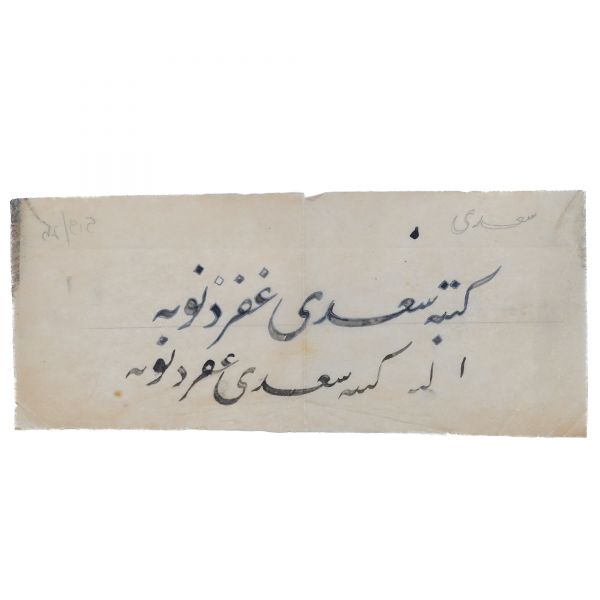 سعدی
كتبه سعدی غفر ذنوبه
ا کتبه سعدی غفر ذنوبه